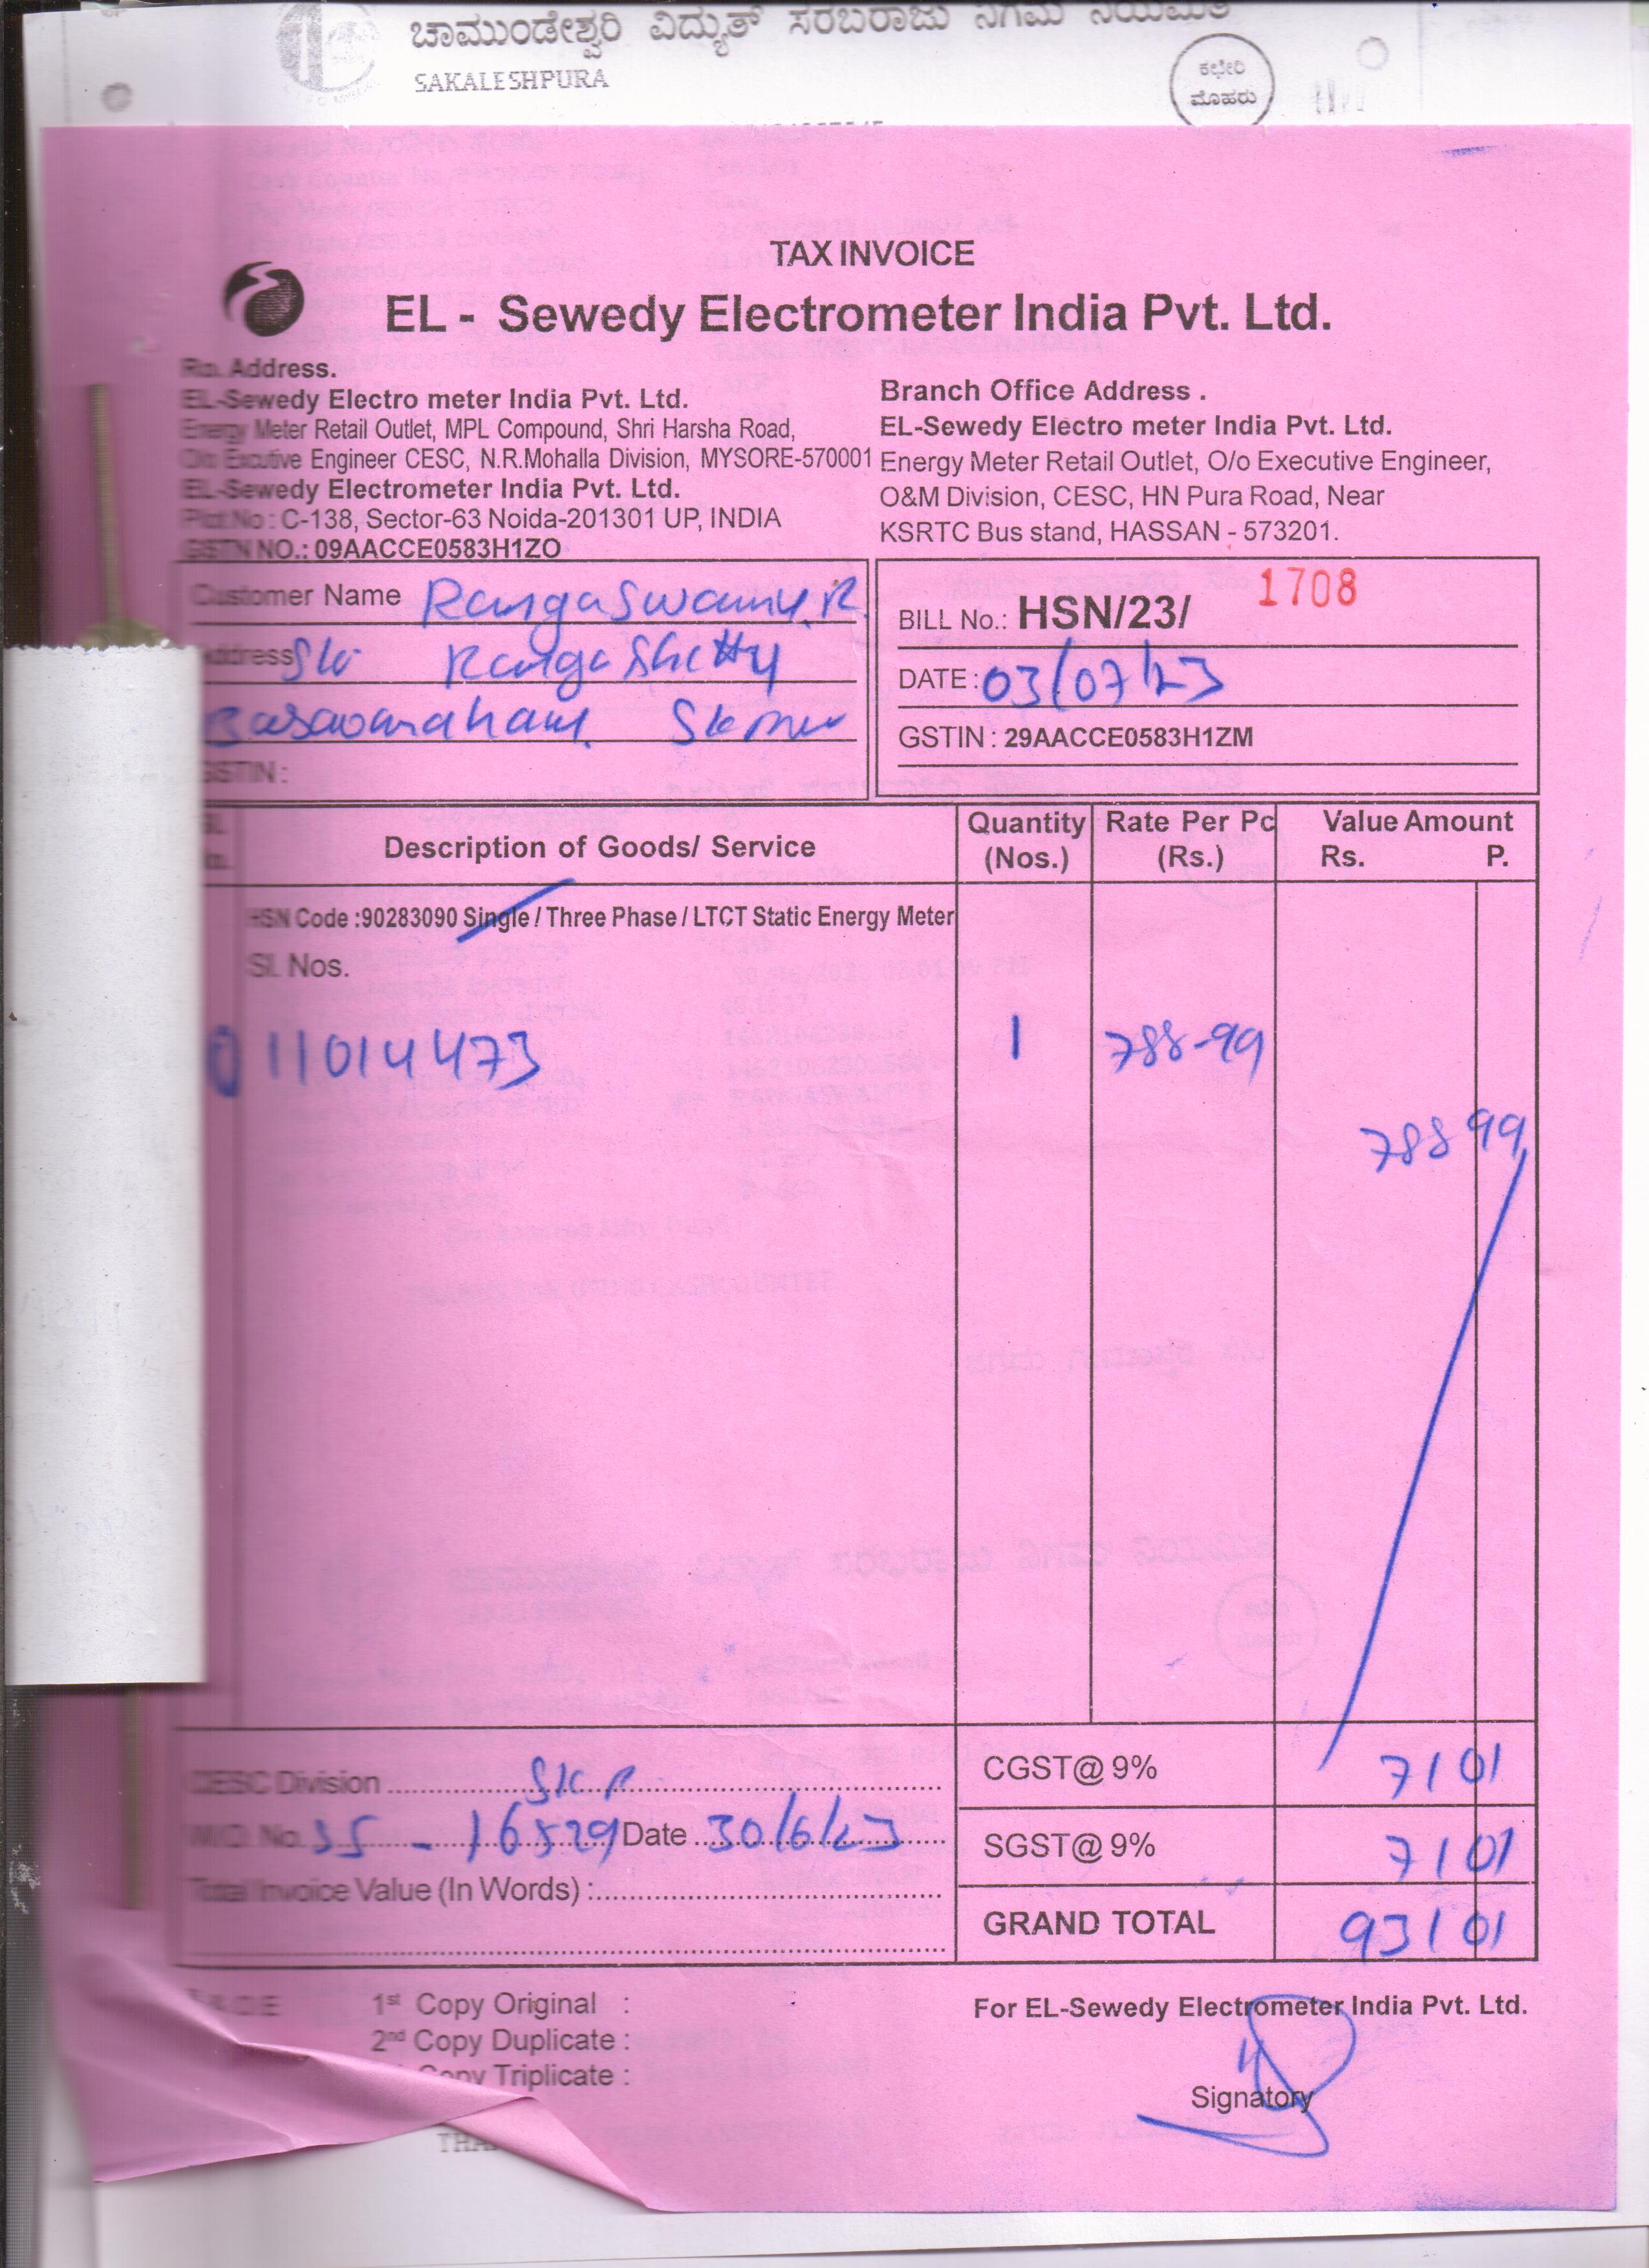 ಚಾಮುಂಡೇಶ್ವರಿ ವಿದ್ಯುತ್ ಸರಬರಾಜು ನಿಗಮ ನಿಯಮಿತ
SAKALESHPURA
ಕಛೇರಿ
ಮೊಹರು
TAX INVOICE
EL - Sewedy Electrometer India Pvt. Ltd.
Address.
EL-Sewedy Electro meter India Pvt. Ltd.
Energy Meter Retail Outlet, MPL Compound, Shri Harsha Road,
O/o Excutive Engineer CESC, N.R.Mohalla Division, MYSORE-570001
EL-Sewedy Electrometer India Pvt. Ltd.
Plot No : C-138, Sector-63 Noida-201301 UP, INDIA
GSTN NO.: 09AACCE0583H1ZO
Branch Office Address .
EL-Sewedy Electro meter India Pvt. Ltd.
Energy Meter Retail Outlet, O/o Executive Engineer,
O&M Division, CESC, HN Pura Road, Near
KSRTC Bus stand, HASSAN - 573201.
Customer Name RangaSwamy.R
Address S/o Ranga Shetty
GSTIN :
BILL No.: HSN/23/ 1708
DATE : 03/07/23
GSTIN : 29AACCE0583H1ZM
Description of Goods/ Service Quantity (Nos.) Rate Per Pc (Rs.) Value Amount Rs. P.
HSN Code :90283090 Single / Three Phase / LTCT Static Energy Meter
Sl. Nos.
011014473 1 788-99
788 99
CESC Division SKP CGST@ 9% 71 01
No. 35 - 16529 Date 30/6/23 SGST@ 9% 71 01
Total Invoice Value (In Words) : GRAND TOTAL 931 01
1st Copy Original :
2nd Copy Duplicate :
Copy Triplicate :
For EL-Sewedy Electrometer India Pvt. Ltd.
Signatory